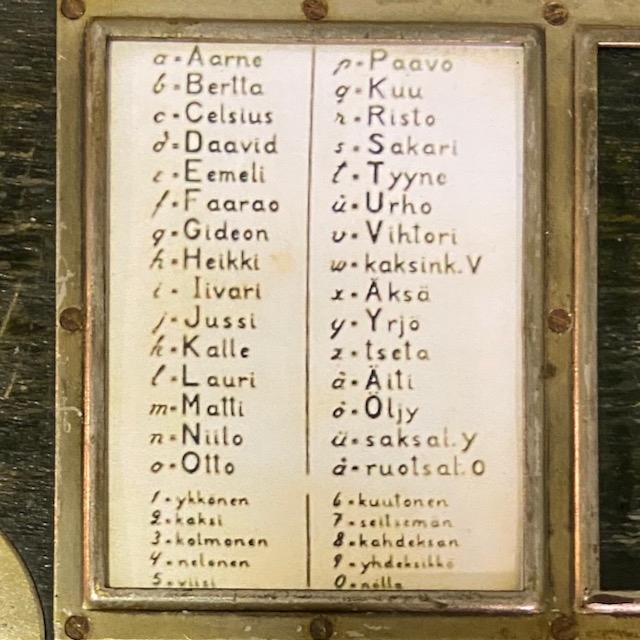 a = Aarne
b = Bertta
c = Celsius
d = Daavid
e = Eemeli
f = Faarao
g = Gideon
h = Heikki
i = Iivari
j = Jussi
k = Kalle
l = Lauri
m = Matti
n = Niilo
o = Otto
p = Paavo
q = Kuu
r = Risto
s = Sakari
t = Tyyne
u = Urho
v = Vihtori
w = kaksink. V
x = Äksä
y = Yrjö
z = tseta
ä = Äiti
ö = Öljy
ü = saksal. y
å = ruotsal. O
1 = ykkönen
2 = kaksi
3 = kolmonen
4 = nelonen
5 = viisi
6 = kuutonen
7 = seitsemän
8 = kahdeksan
9 = yhdeksikkö
0 = nolla